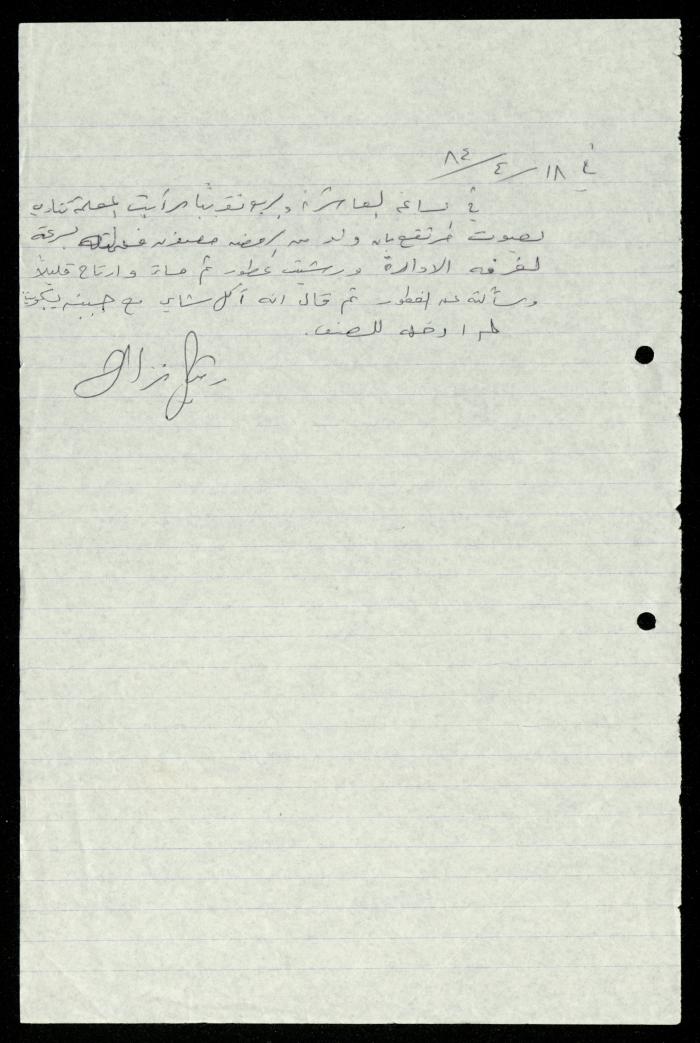 في ١٨/٤/٨٤
في ساعة العاشرة وربع تقريبا رأيت المعلمة تنادي
بصوت مرتفع بان ولد من الروضة مصفرن فحملته بسرعة
لغرفه الادارة ورشيت عطور ثم ماء وارتاح قليلاً
وسألته عن الفطور ثم قال انه أكل شاي مع جبينه يكون
ثم ادخله للصف.